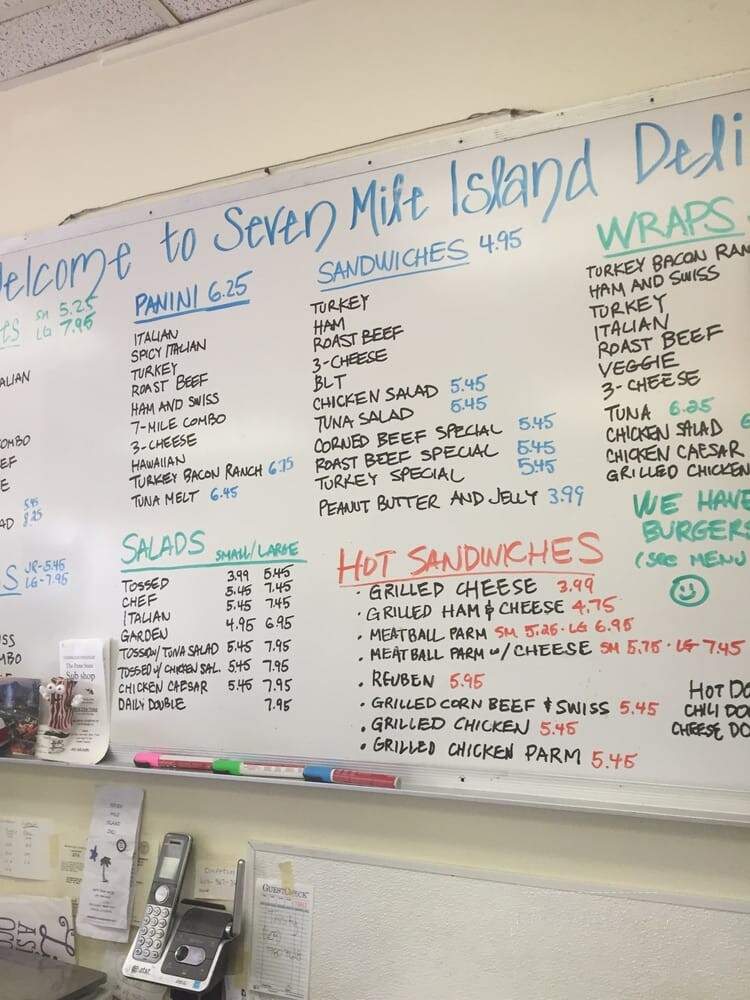 Welcome to Seven Mile Island Deli
SM 5.25
LG 7.95
ALIAN
OMBO
EF
E
5.45
AD 8.25
S JR-5.45
LG-7.95
ISS
MBO
PANINI 6.25
ITALIAN
SPICY ITALIAN
TURKEY
ROAST BEEF
HAM AND SWISS
7-MILE COMBO
3-CHEESE
HAWAIIAN
TURKEY BACON RANCH 6.75
TUNA MELT 6.45
SALADS SMALL/LARGE
TOSSED 3.99 5.45
CHEF 5.45 7.45
ITALIAN 5.45 7.45
GARDEN 4.95 6.95
TOSSED W/ TUNA SALAD 5.45 7.95
TOSSED W/ CHICKEN SAL. 5.45 7.95
CHICKEN CAESAR 5.45 7.95
DAILY DOUBLE 7.95
SANDWICHES 4.95
TURKEY
HAM
ROAST BEEF
3-CHEESE
BLT
CHICKEN SALAD 5.45
TUNA SALAD 5.45
CORNED BEEF SPECIAL 5.45
ROAST BEEF SPECIAL 5.45
TURKEY SPECIAL 5.45
PEANUT BUTTER AND JELLY 3.99
HOT SANDWICHES
• GRILLED CHEESE 3.99
• GRILLED HAM & CHEESE 4.75
• MEATBALL PARM SM 5.25 • LG 6.95
• MEATBALL PARM W/ CHEESE SM 5.75 • LG 7.45
• REUBEN 5.95
• GRILLED CORN BEEF & SWISS 5.45
• GRILLED CHICKEN 5.45
• GRILLED CHICKEN PARM 5.45
WRAPS
TURKEY BACON RAN
HAM AND SWISS
TURKEY
ITALIAN
ROAST BEEF
VEGGIE
3-CHEESE
TUNA 6.25
CHICKEN SALAD 6
CHICKEN CAESAR
GRILLED CHICKEN
WE HAVE
BURGERS
(SEE MENU
HOT DO
CHILI DO
CHEESE DO
Sub shop
SEVEN
MILE
ISLAND
DELI
at&t
GUEST CHECK